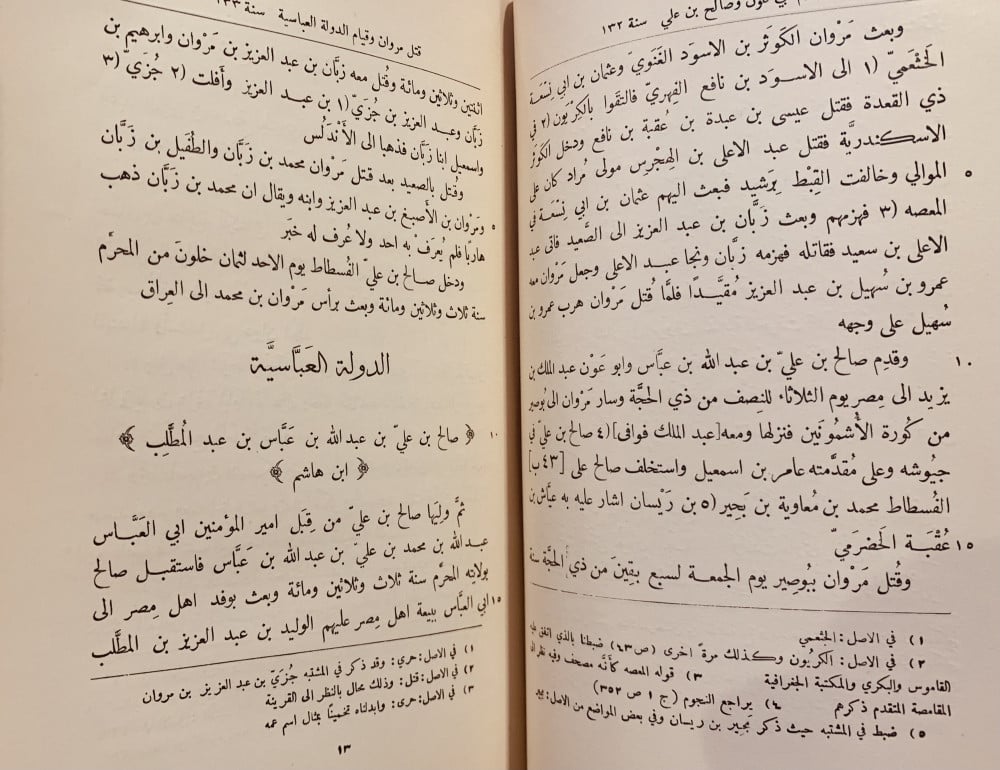 وصالح بن علي سنة ١٣٢
وبعث مَرْوان الكَوثَر بن الاسوَد الغَنَويّ وعثمان بن ابي نِسْعَة
الخَثْعَميّ (١ الى الاسوَد بن نافع الفِهريّ فالتقَوا بالكِرْيَون (٢ في
ذي القعدة فقتل عيسى بن عبدة بن عُقبة بن نافع ودخل الكَوْثَر
الاسكندريَّة فقتل عبد الاعلى بن الهِجْرِس مولى مُراد كان على
الموالي وخالفت القِبْط بِرَشيد فبعث اليهم عثمان بن ابي نِسْعَة في ٥
المعصه (٣ فهزمهم وبعث زَبَّان بن عبد العزيز الى الصَّعيد فاتى عبد
الاعلى بن سعيد فقاتله فهزمه زبَّان ونجا عبد الاعلى وجعل مَرْوان معه
عمرو بن سُهيل بن عبد العزيز مُقيَّدًا فلمَّا قُتل مَرْوان هرب عمرو بن
سُهيل على وجهه
وقدِم صالح بن عليّ بن عبد الله بن عبَّاس وابو عَوْن عبد الملك بن ١٠
يزيد الى مِصر يوم الثلاثاء للنِصف من ذي الحجَّة وسار مَرْوان الى بُوصير
من كُورة الأُشمُونَين فنزلها ومعه [عبد الملك فوافى] (٤ صالح بن عليّ في
جيوشه وعلى مُقدَّمته عامر بن اسمعيل واستخلف صالح على [٤٣ ب]
الفُسطاط محمد بن مُعاوية بن بَحِير (٥ بن رَيْسان اشار عليه به عيَّاش بن
عُقْبَة الحَضْرَميّ ١٥
وقُتل مَرْوان ببُوصير يوم الجمعة لسبع بقِينَ من ذي الحجَّة سنة
١) في الاصل: الجثعمي
٢) في الاصل: الكَرْيُون وكذلك مرةً اخرى (ص ٤٣) ضبطنا بالذي اتفق عليه
القاموس والبكري والمكتبة الجغرافية ٣) قوله المعصه كأنَّه مصحف وفيه نظر
المقامصة المتقدم ذكرهم ٤) يراجع النجوم (ج ١ ص ٣٥٢)
٥) ضبط في المشتبه حيث ذكر بَحِير بن ريسان وفي بعض المواضع من الاصل:
قتل مروان وقيام الدولة العباسية سنة ١٣٣
اثنتين وثلاثين ومائة وقُتل معه زبَّان بن عبد العزيز بن مَرْوان وابرهيم بن
زبَّان وعبد العزيز بن جُزَيّ (١ بن عبد العزيز وأَفلت (٢ جُزَيّ (٣
واسمعيل ابنا زَبَّان فذهبا الى الأَنْدَلُس
وقُتل بالصعيد بعد قتل مَرْوان محمد بن زَبَّان والطُفَيل بن زَبَّان
ومَرْوان بن الأَصبغ بن عبد العزيز وابنه ويقال ان محمد بن زَبَّان ذهب ٥
هاربًا فلم يُعرَف به احد ولا عُرف له خبَر
ودخل صالح بن عليّ الفُسطاط يوم الاحد لثمان خلونَ من المحرَّم
سنة ثلاث وثلاثين ومائة وبعث برأس مَرْوان بن محمد الى العِراق
الدولة العَبَّاسيَّة
﴿ صالح بن عليّ بن عبد الله بن عَبَّاس بن عبد المُطَّلِب ﴾ ١٠
﴿ ابن هاشم ﴾
ثمَّ وليَها صالح بن عليّ من قِبَل امير المؤمنين ابي العَبَّاس
عبد الله بن محمد بن عليّ بن عبد الله بن عَبَّاس فاستقبل صالح
بولايته المحرَّم سنة ثلاث وثلاثين ومائة وبعث بوفد اهل مِصر الى
ابي العبَّاس ببيعة اهل مِصر عليهم الوليد بن عبد العزيز بن المطَّلب ١٥
١) في الاصل: حري: وقد ذكر في المشتبه جُزَيّ بن عبد العزيز بن مروان
٢) في الاصل: قتل: وذلك محال بالنظر الى القرينة
٣) في الاصل: حرى: وابدلناه تخمينًا بمثال اسم عمه
١٣